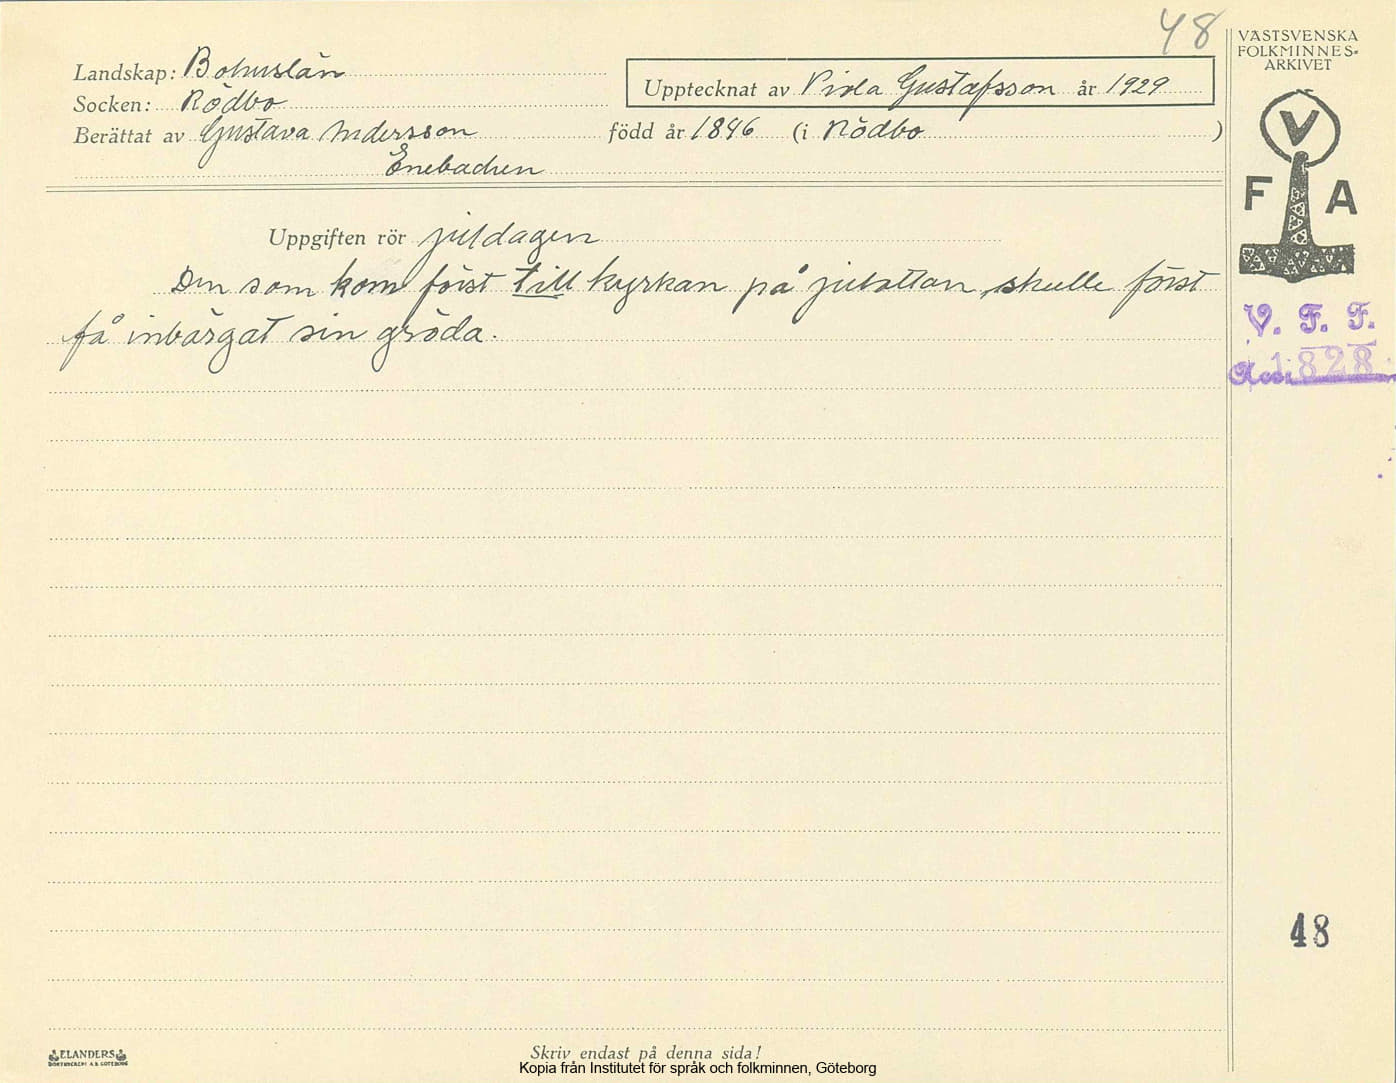 48
VÄSTSVENSKA
FOLKMINNES-
ARKIVET
Landskap: Bohuslän
Upptecknat av Viola Gustafsson år 1929
Socken: Rödbo
Berättat av Gustava Andersson född år 1846 (i Rödbo )
Enebacken
V
F A
Uppgiften rör juldagen
Den som kom först till kyrkan på julottan skulle först
få inbärgat sin gröda.
V. F. F.
1828
48
ELANDERS
BOKTRYCKERI A.B. GÖTEBORG
Skriv endast på denna sida!
Kopia från Institutet för språk och folkminnen, Göteborg